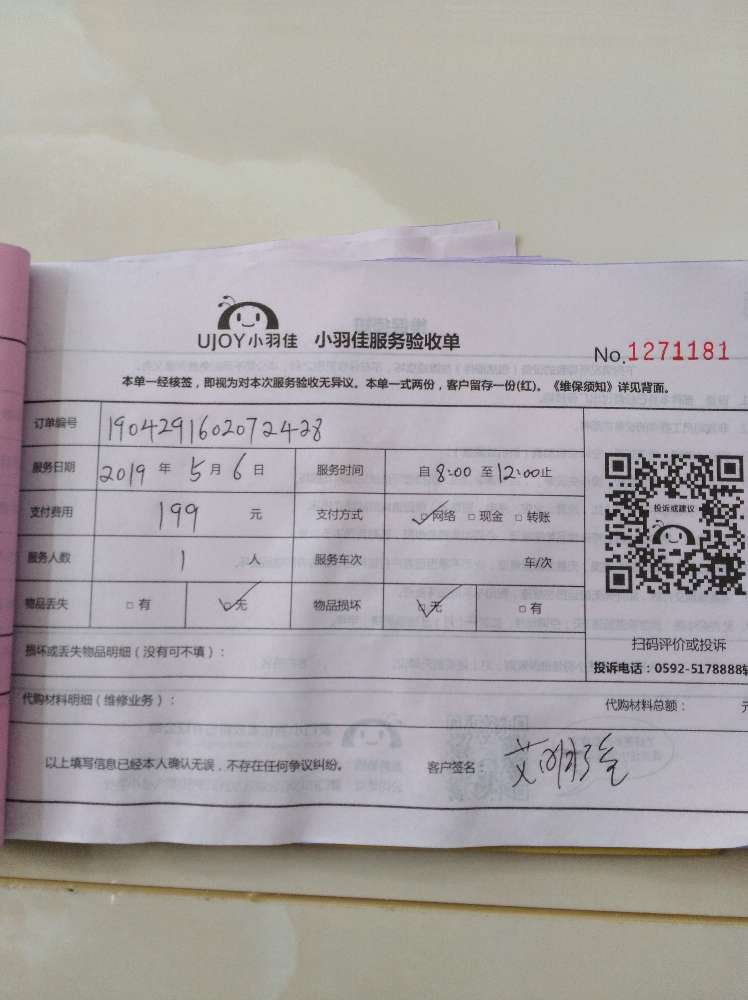 UJOY小羽佳 小羽佳服务验收单
No.1271181
本单一经核签，即视为对本次服务验收无异议。本单一式两份，客户留存一份(红)。《维保须知》详见背面。
订单编号 1904291602072428
服务日期 2019 年 5 月 6 日 服务时间 自 8:00 至 12:00止
支付费用 199 元 支付方式 □网络 □现金 □转账
服务人数 1 人 服务车次 车/次
物品丢失 □有 □无 物品损坏 □无 □有
投诉或建议
扫码评价或投诉
投诉电话：0592-5178888转
损坏或丢失物品明细（没有可不填）：
代购材料明细（维修业务）： 代购材料总额： 元
以上填写信息已经本人确认无误，不存在任何争议纠纷。 客户签名：